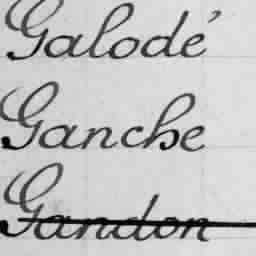 Galodé
Ganche
Gandon